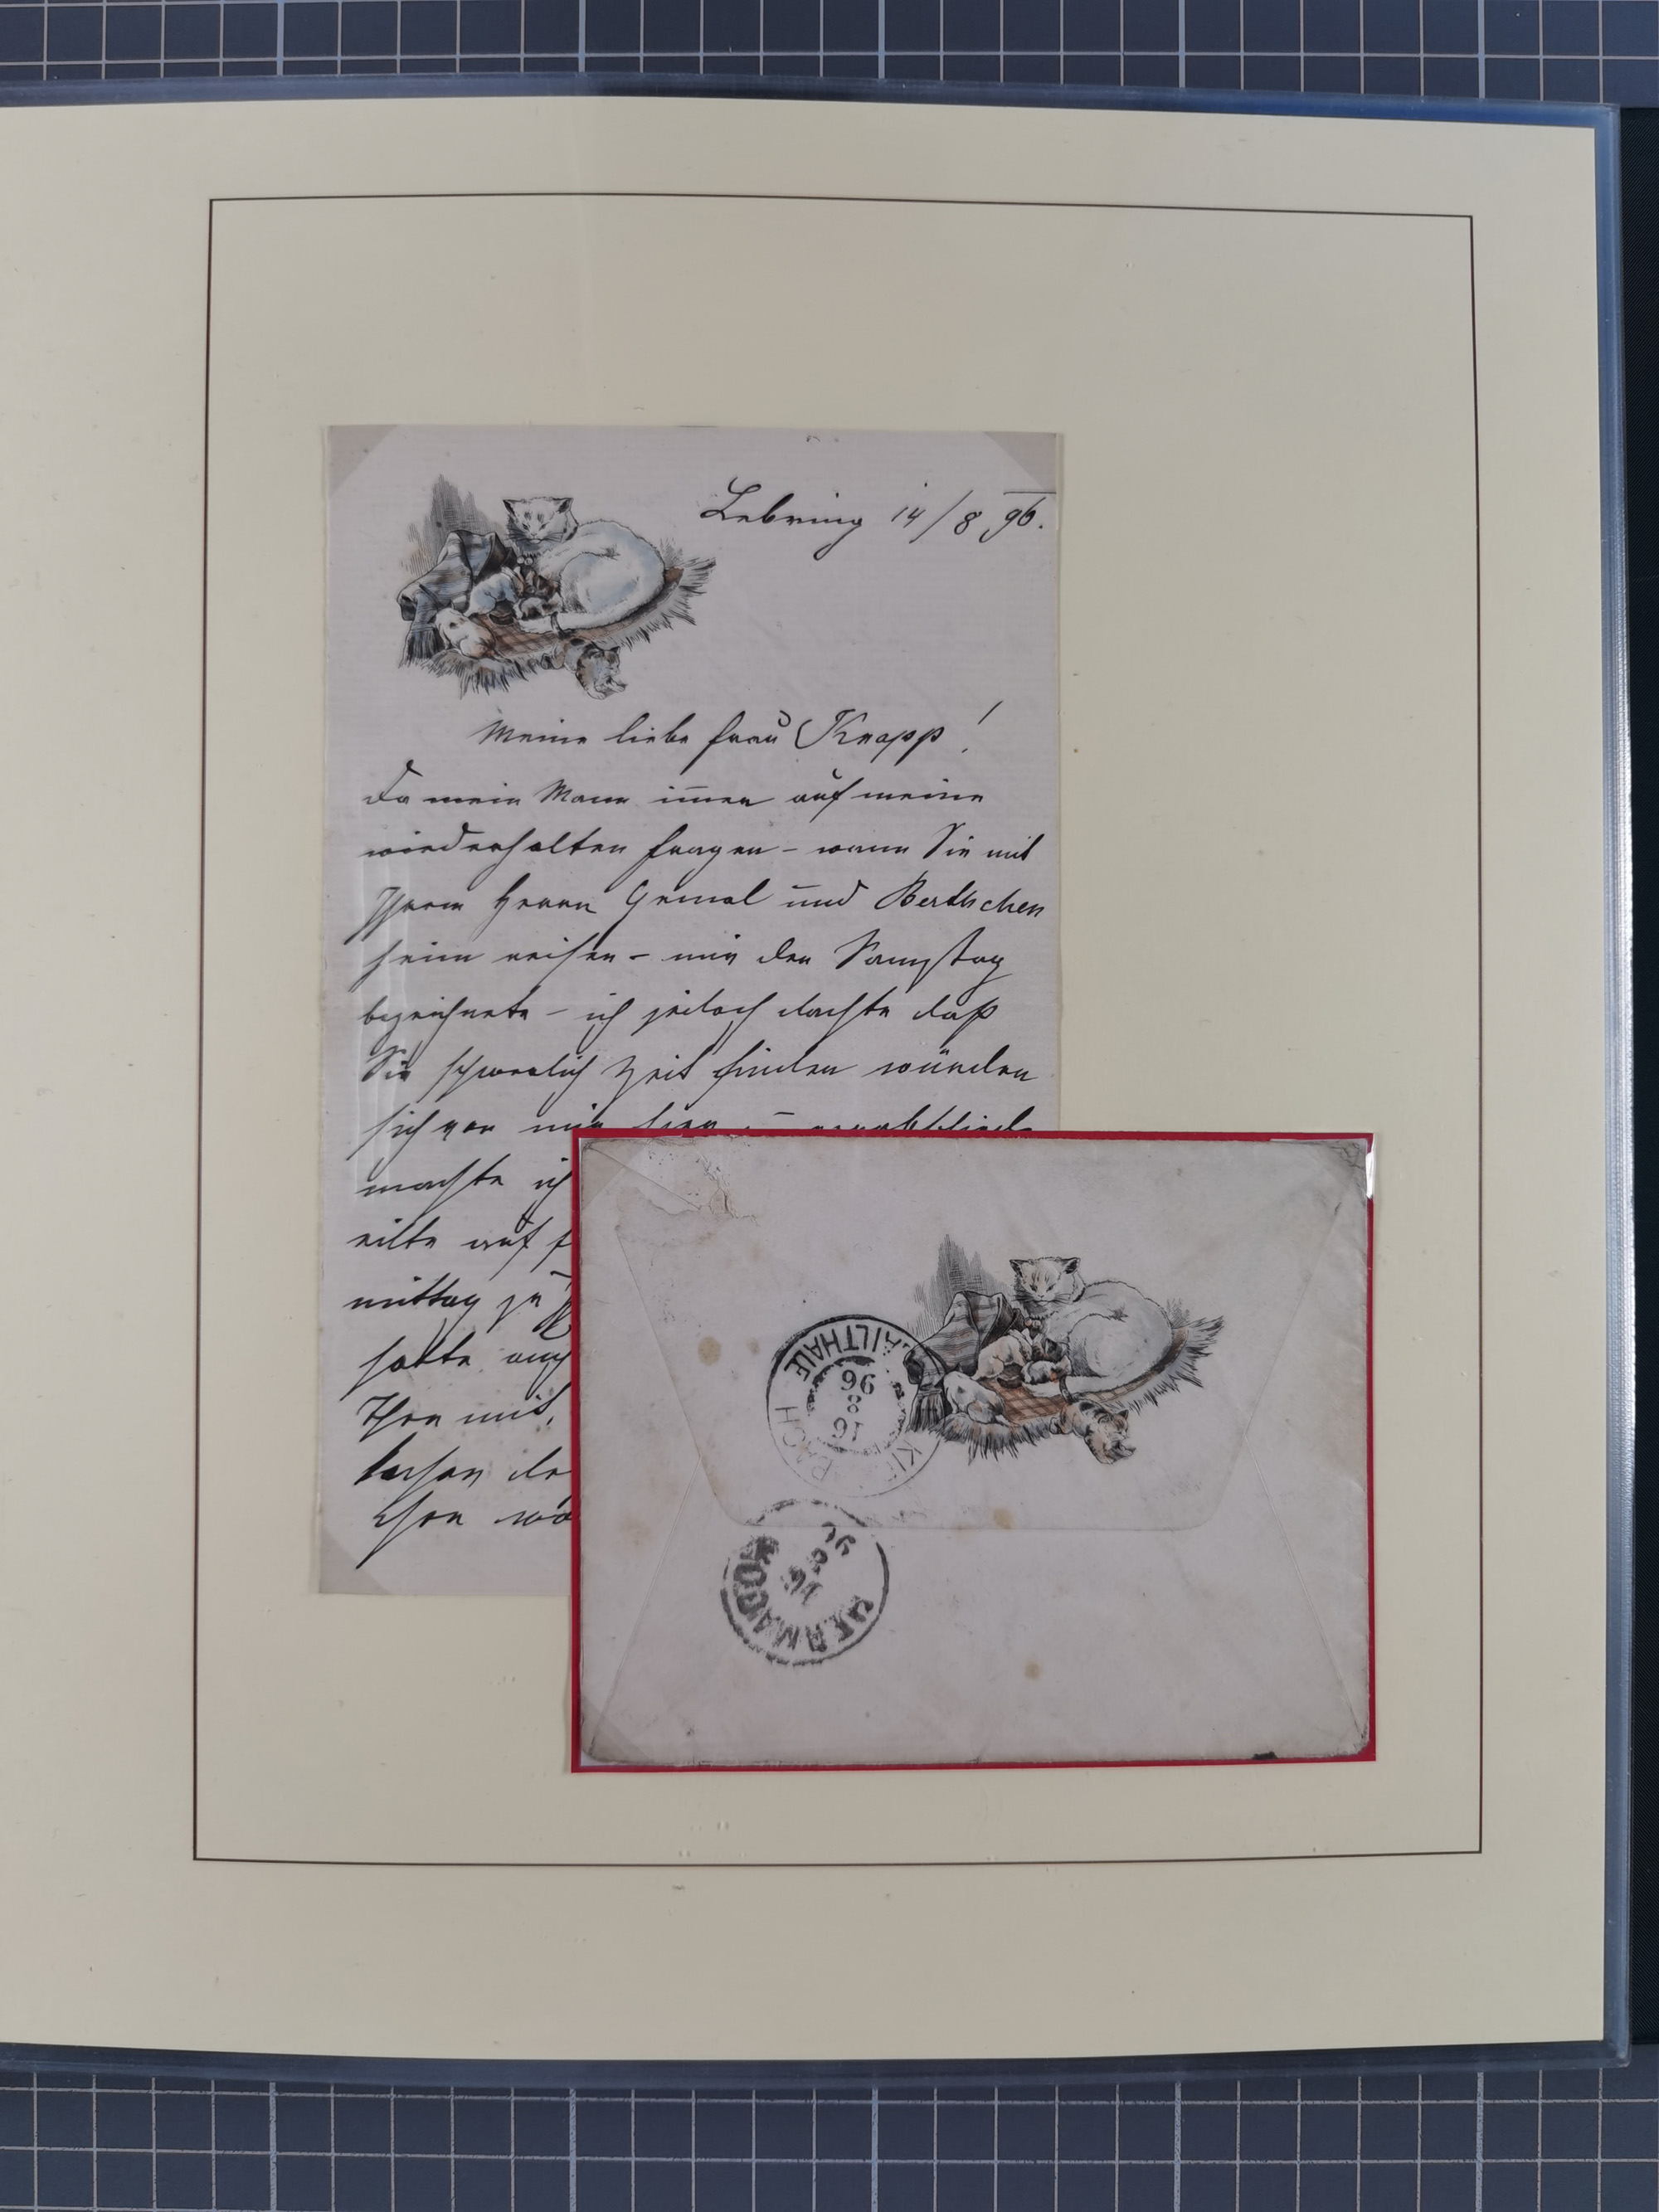 Lebring 14/8 96.
Meine liebe Frau Knapp!
Da mein Mann im̅er auf meine
wiederholten Fragen – wann Sie mit
Ihrem Herrn Gemal und Berthchen
heim reisen – mir den Samstag
bezeichnete – ich jedoch dachte daß
Sie schwerlich Zeit finden würden
sich von mir
machte ich
eilte auf
mittag zu
hatte
Ihn mit,
schon
KIR BACH GAILTHALE
16
8
96
HERMAGOR
16
8
96